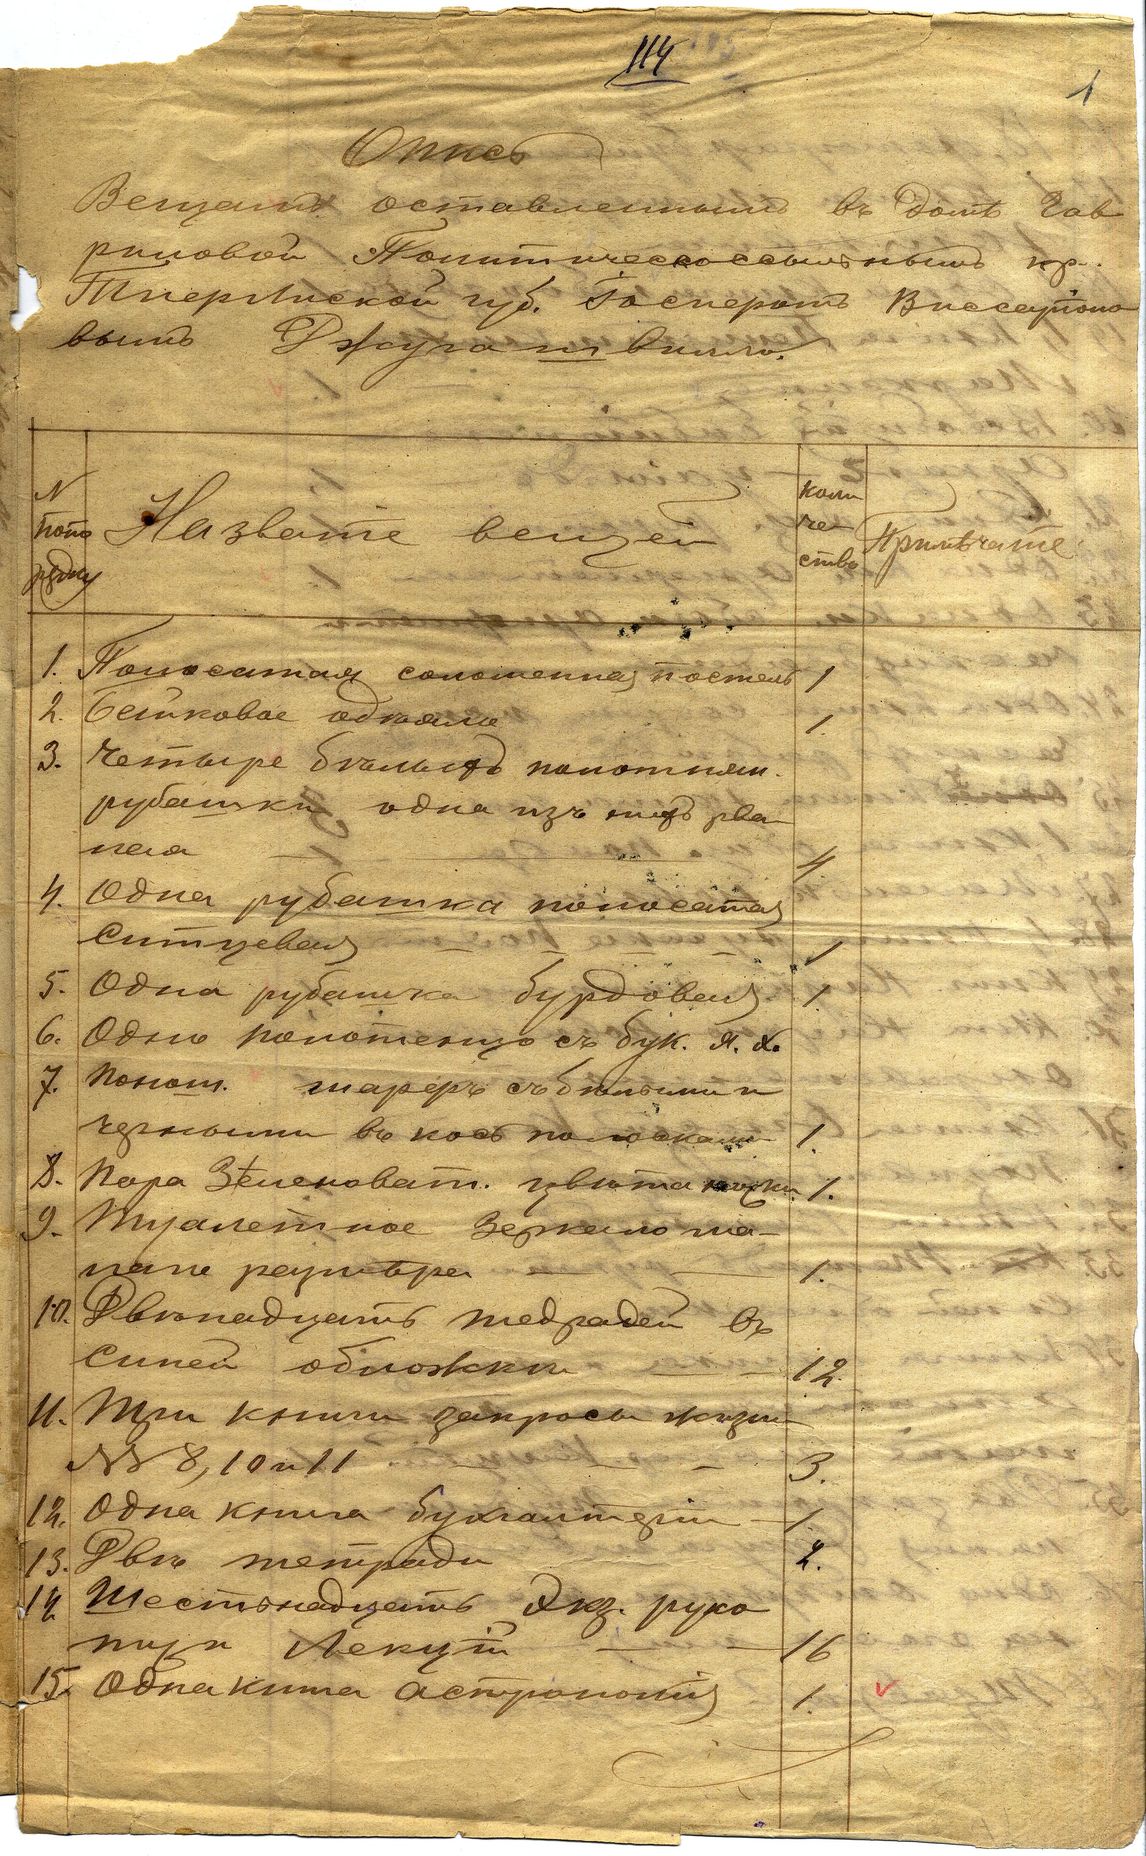 114
1
Опись
Вещамъ оставленнымъ въ домѣ Гав
риловой Политическоссыльнымъ кр.
Тифлиской губ. Іосифомъ Виссаріоно
вымъ Джугашвилли.
N
попо
рядку
Названіе вещей
коли
че
ство
Примѣчаніе
1. Полосатая соломенная постель 1
2. Байковое одеяло 1.
3. Четыре бѣлыхъ полотнян.
рубашки одна изъ нихъ рва
ная 4.
4. Одна рубашка полосатая
ситцевая — — — 1
5. Одна рубашка бурдовая 1.
6. Одно полотенцо съ бук. Я. Х.
7. Полот. шарфъ съ бѣлыми и
черными въ косъ полосками 1.
8. Пара Зеленоват. цвѣта 1.
9. Туалетное Зеркало ма-
лаго размѣра — — 1.
10. Двѣнадцать тедрадей въ
синей обложки — — 12
11. Три книги запросы жизни
NN 8, 10 и 11 — — 3.
12. Одна книга бухгалтеріи — 1
13. Двѣ тетради 2.
14. Шестьнадцать Экз. руко
писи Лекцій — — 16
15. Одна книга астрономія 1.